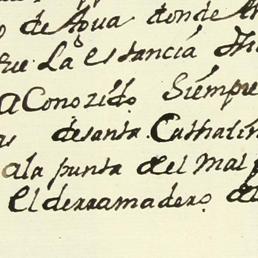 de Agua donde
fue La estancia
a Conozido Siempre
desanta Cathalin
ala punta del Mal p
El derramadero de